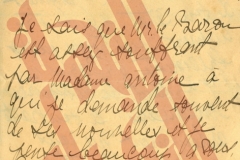 Je sais que Mr le Baron
est assez souffrant
par Madame antoine à
qui je demande souvent
de ses nouvelles et je
pense beaucoup à vous